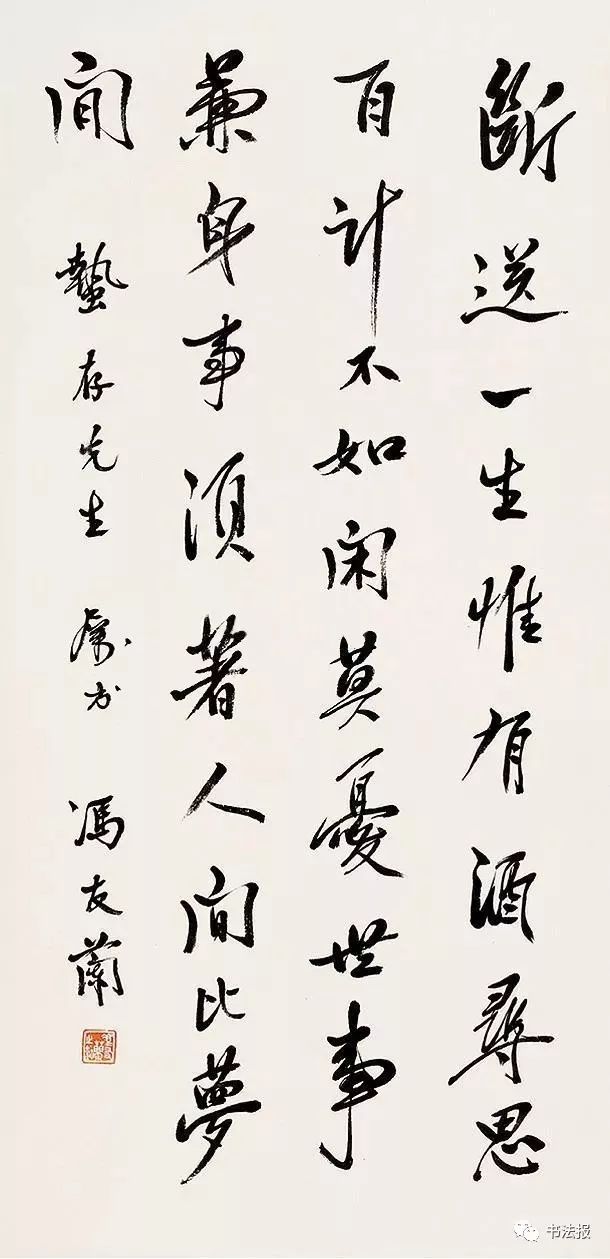 斷送一生惟有酒尋思
百計不如闲莫憂世事
兼身事須著人间比夢
间 蟄存先生 屬书 馮友蘭
书法报